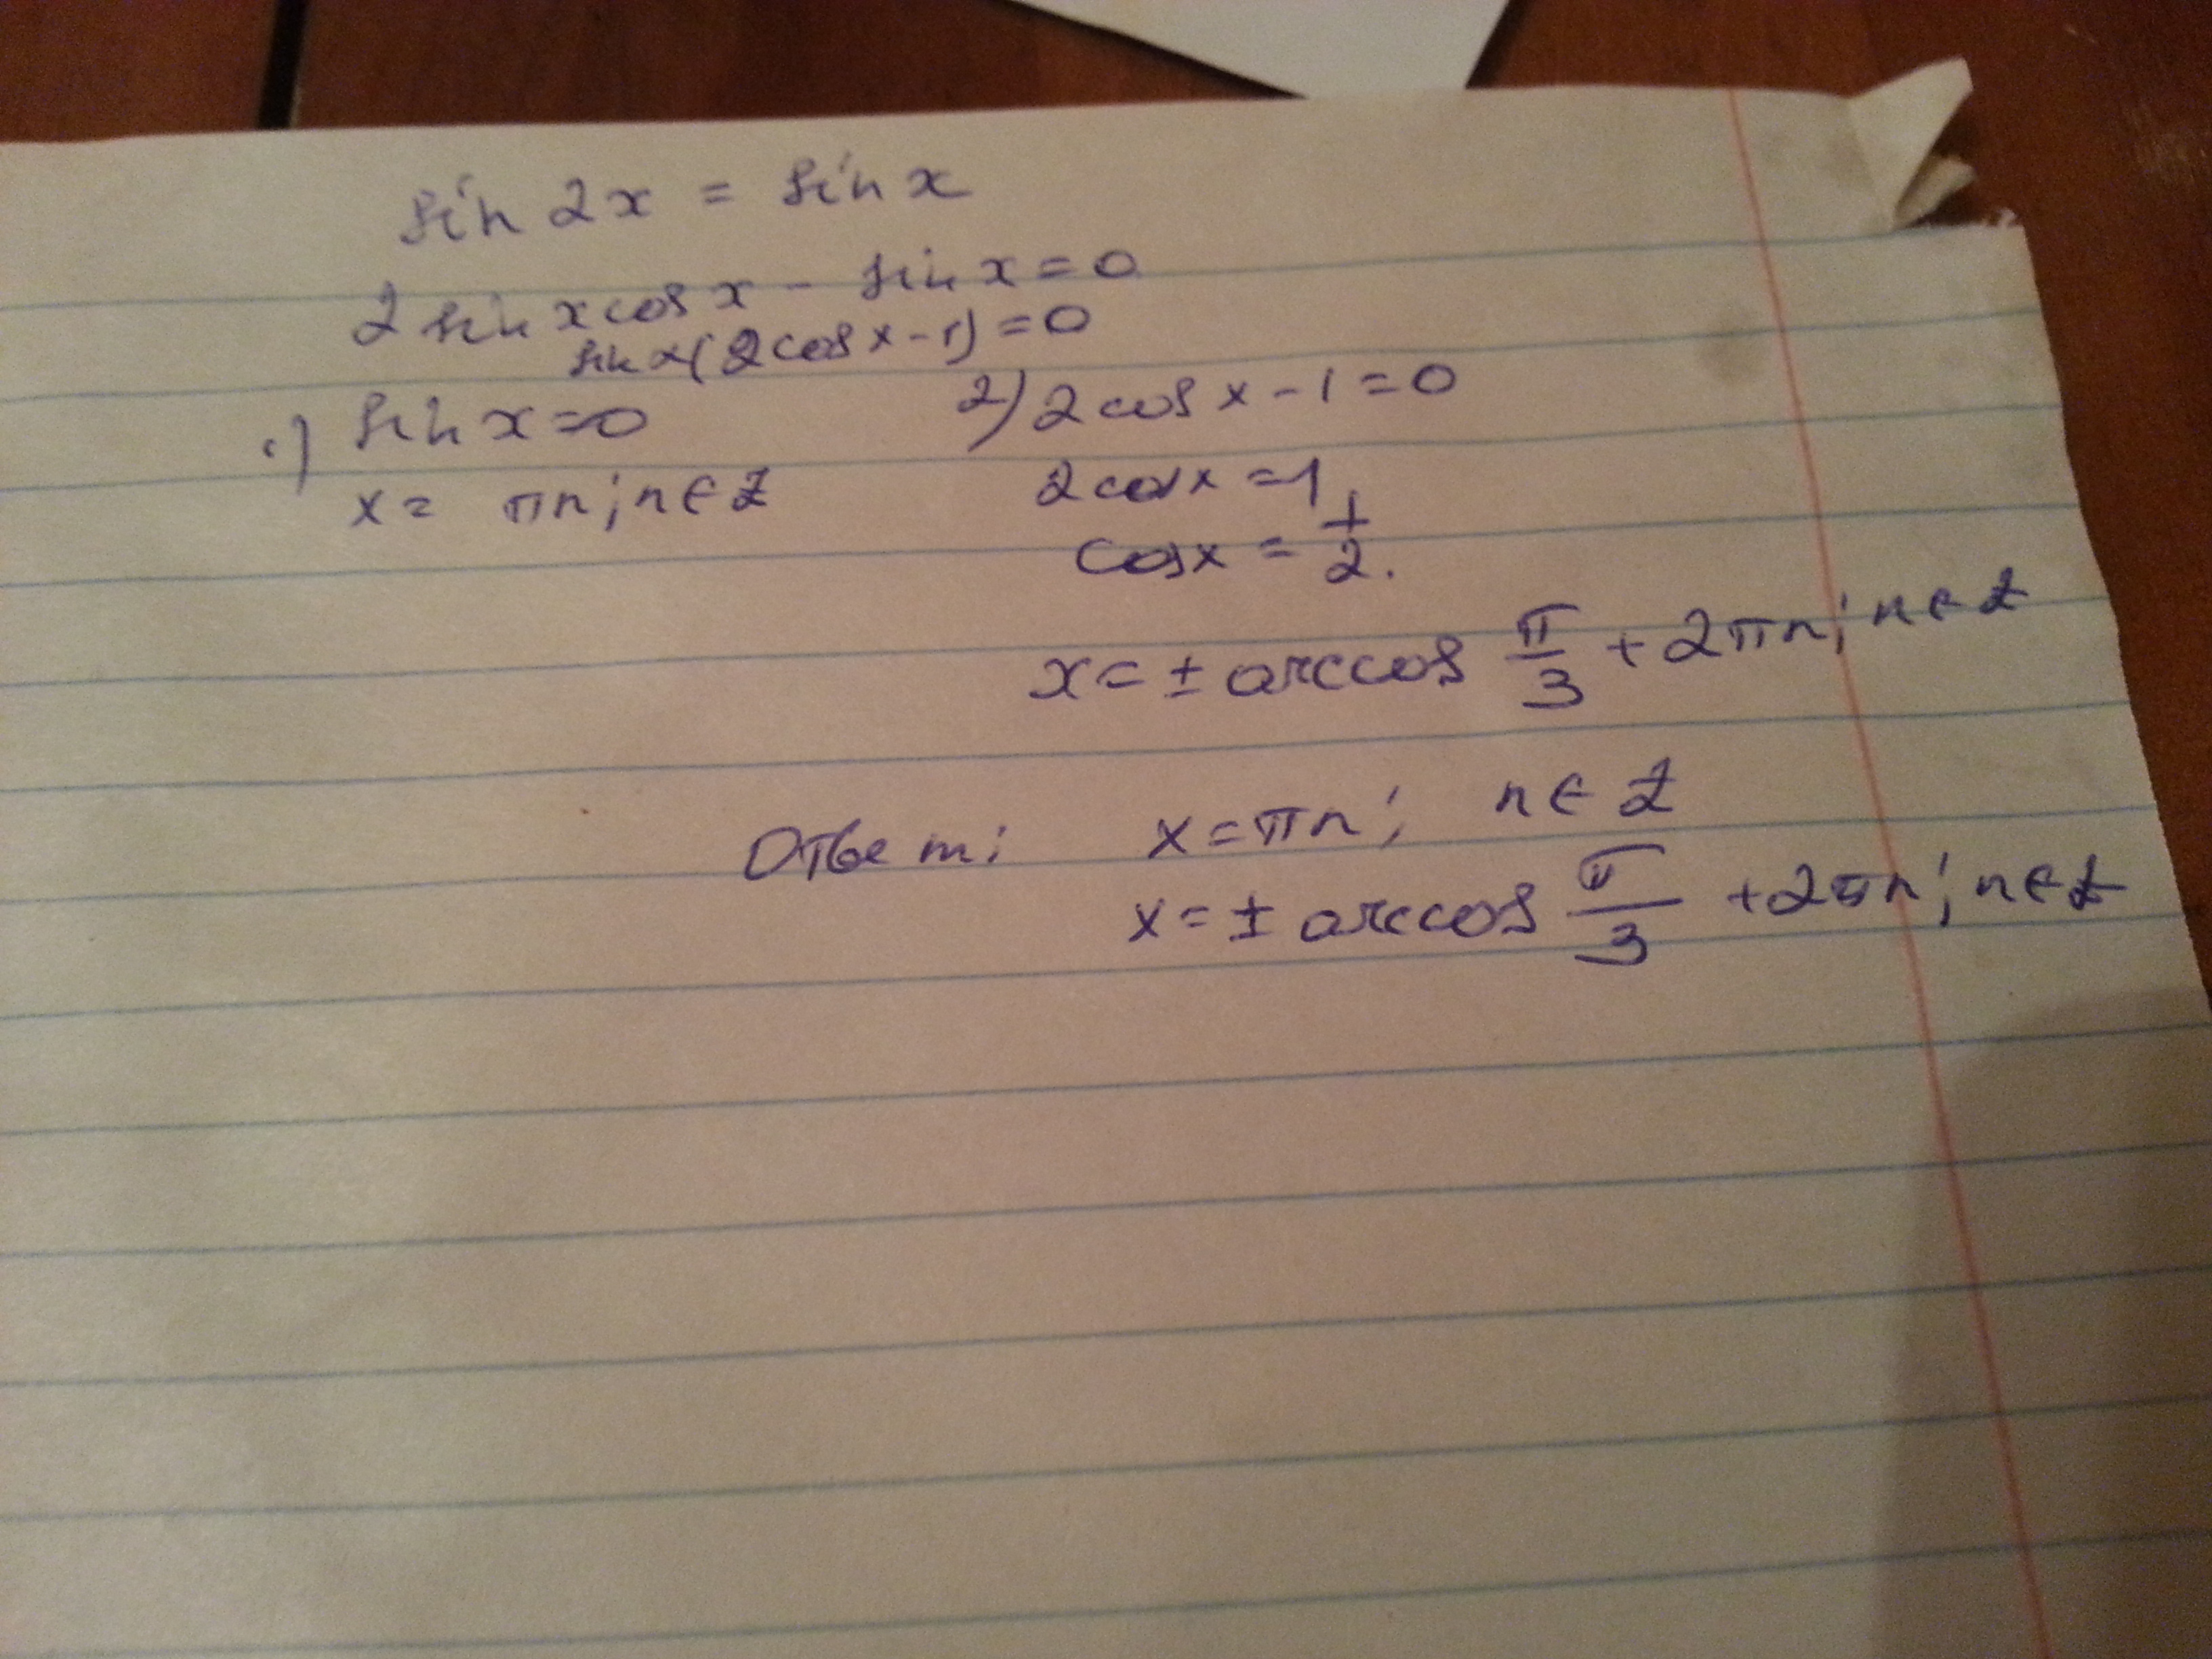 sin 2x = sin x
2 sin x cos x - sin x = 0
sin x (2 cos x - 1) = 0
1) sin x = 0
x = πn; n ∈ Z
2) 2 cos x - 1 = 0
2 cos x = 1
cos x = 1/2.
x = ± arccos π/3 + 2πn; n ∈ Z
Ответ: x = πn; n ∈ Z
x = ± arccos π/3 + 2πn; n ∈ Z